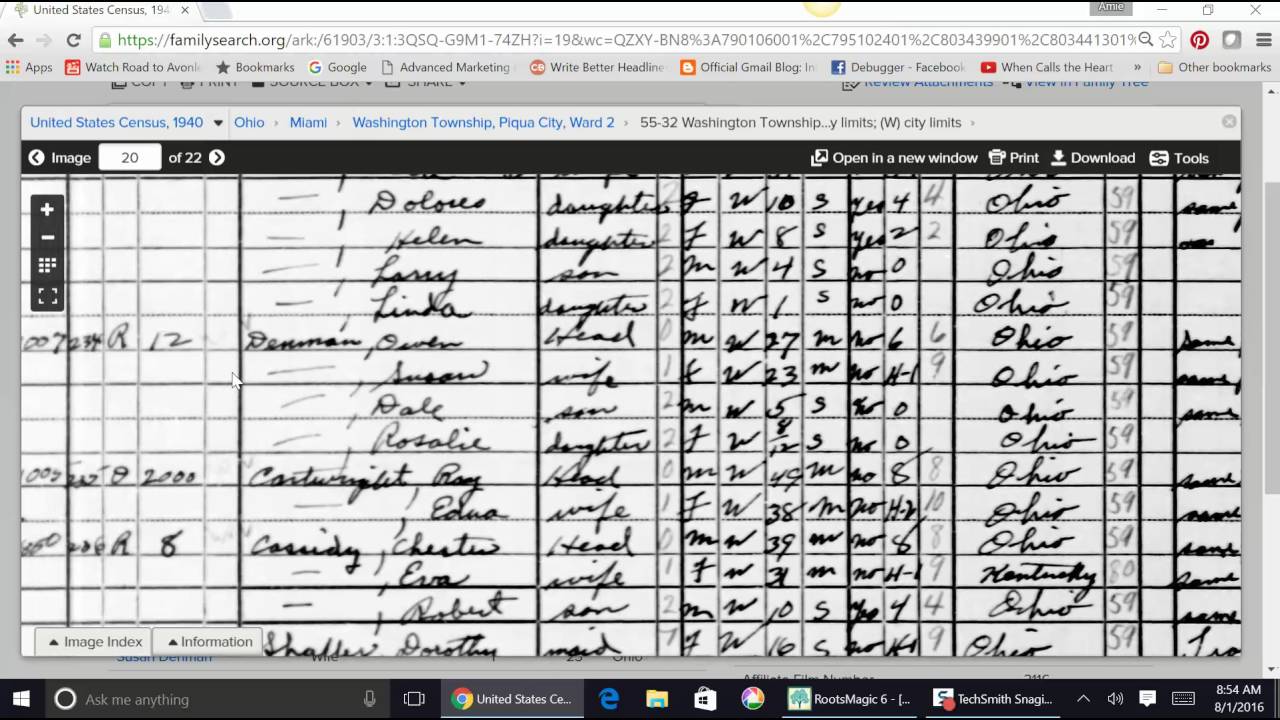 United States Census, 194
Amie
https://familysearch.org/ark:/61903/3:1:3QSQ-G9M1-74ZH?i=19&wc=QZXY-BN8%3A790106001%2C795102401%2C803439901%2C803441301%
Apps Watch Road to Avonle Bookmarks Google Advanced Marketing Write Better Headline Official Gmail Blog: In Debugger - Facebook When Calls the Heart » Other bookmarks
COPY PRINT SOURCE BOX SHARE Review Attachments View in Family Tree
United States Census, 1940 Ohio › Miami › Washington Township, Piqua City, Ward 2 › 55-32 Washington Township...y limits; (W) city limits ›
Image 20 of 22 Open in a new window Print Download Tools
— , Dolores daughter 2 F W 10 S yes 4 4 Ohio 59 same
— , Helen daughter 2 F W 8 S yes 2 2 Ohio 59
— , Larry son 2 M W 4 S no 0 Ohio 59
— , Linda daughter 2 F W 1 S no 0 Ohio 59
1007 234 R 12 Denman, Owen Head 0 M W 27 M no 6 6 Ohio 59 same
— , Susan wife 1 F W 23 M no H-1 9 Ohio 59 same
— , Dale son 2 M W 5 S no 0 Ohio 59 same
— , Rosalie daughter 2 F W 8/12 S no 0 Ohio 59
O 2000 Cartwright, Ray Head 0 M W 49 M no 8 8 Ohio 59 same
— , Edna wife 1 F W 38 M no H-2 10 Ohio 59 same
236 R 8 Cassidy, Chester Head 0 M W 39 M no 8 8 Ohio 59 same
— , Eva wife 1 F W 31 M no H-1 9 Kentucky 80 same
— , Robert son 2 M W 10 S yes 4 4 Ohio 59 same
Shaffer, Dorothy maid 7 F W 16 S no H-1 9 Ohio 59
Image Index Information
Susan Denman Wife 23 Ohio
Affiliate Film Number 2116
Ask me anything United States Ce... RootsMagic 6 - [... TechSmith Snagi... 8:54 AM
8/1/2016